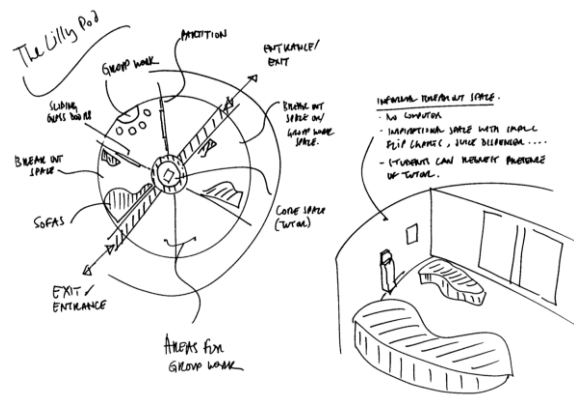 The Lilly Pod
PARTITION
GROUP WORK
ENTRANCE/
EXIT
SLIDING
GLASS DOORS
BREAK OUT
SPACE OR/
GROUP WORK
SPACE.
BREAK OUT
SPACE
SOFAS
CORE SPACE
(TUTOR)
EXIT/
ENTRANCE
AREAS FOR
GROUP WORK
INFORMAL BREAK OUT SPACE.
- NO COMPUTER
- INSPIRATIONAL SPACE WITH SMALL
FLIP CHARTS, JUICE DISPENSER....
- STUDENTS CAN REQUEST PRESENCE
OF TUTOR.